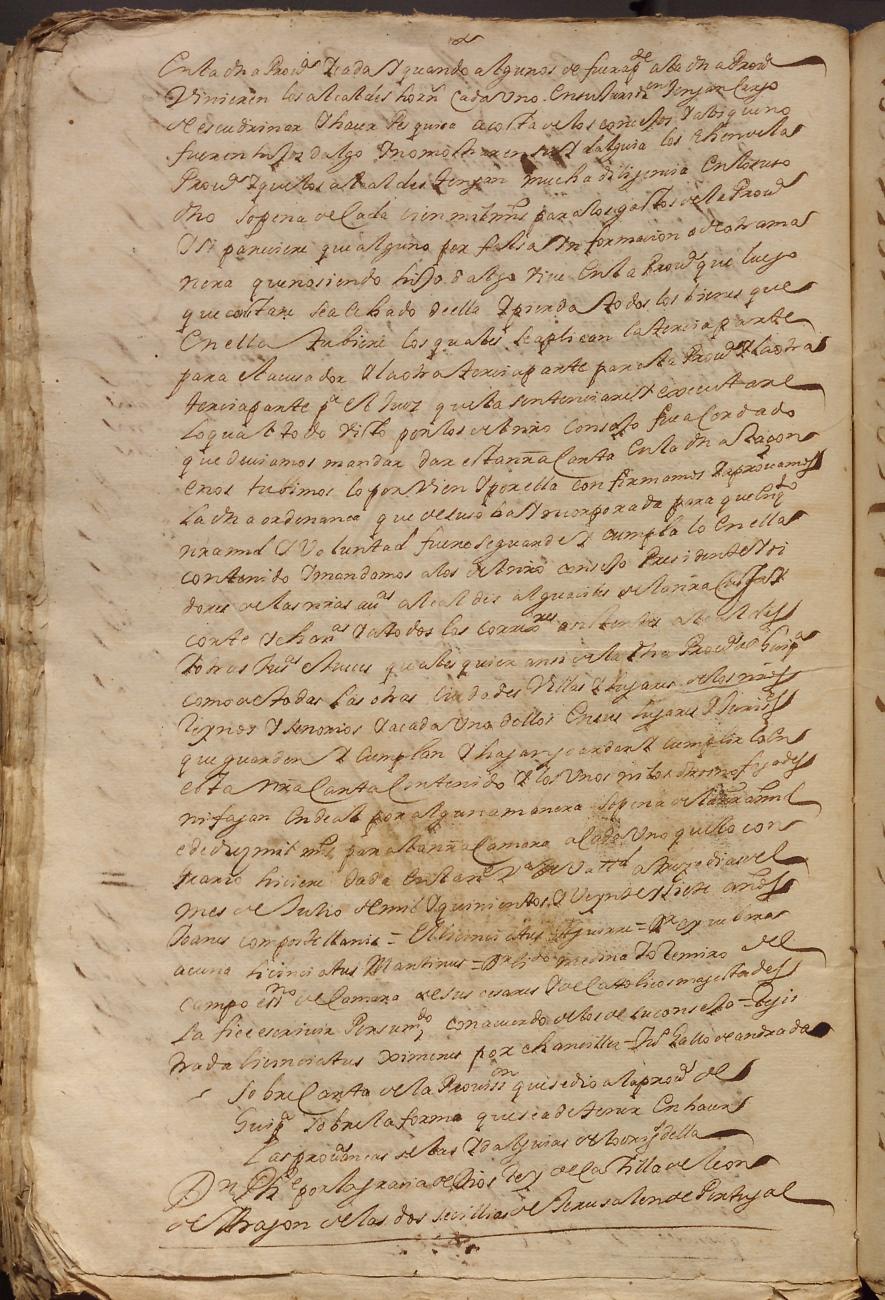 En la dha Prouª Y cada Y quando algunos de fuera pte a la dha Prouª
Vinieren los alcaldes hordos cada uno en su Jurisdn tengan Cargo
de escudriñar Y hauer pesquisa a costa de los concejos Y a los que no
fueren hijos dalgo Y no mostraren su Ydalguia los Echen de la
Prouª Y que los alcaldes tengan mucha diligencia En lo suso
dho so pena de Cada cien mil mrs para los gastos de la Prouª
Y si pareciere que alguno por falsa Informacion o de otra ma
nera que no siendo hijo dalgo viue En la Prouª que luego
que constare sea Echado de ella Y pierda todos los bienes que
En ella tubiere los quales se aplican la tercia parte
para el acusador Y la otra tercia parte para la Prouª Y la otra
tercia parte pª el Juez que la sentenciare Y executare
Lo qual todo visto por los del nro Consejo fue aCordado
que deuiamos mandar dar esta nrª Carta En la dha Raçon
e nos tubimos lo por Vien Y por ella confirmamos Y aprouamos
La dha ordenança que de suso ba Yncorporada para que en qto
nra md Y Voluntad fuere se guarde Y cumpla lo En ella
contenido Y mandamos a los del nro consejo Presidente Y oi
dores de las nras auªs alcaldes alguaciles de la nra Casa Y
corte Y chanªs Y a todos los correxres asistentes alcaldes
Y otras Jusªs Y Jueces qualesquier ansi de la dha Prouª de Guipª
como de todas las otras Ciudades Villas Y lugares de los nros
Reynos Y senorios Y a cada Uno dellos En sus lugares Y Jurisns
que guarden Y cumplan Y hagan guardar Y cumplir lo En
esta nra Carta Contenido Y los Unos ni los otros no fagades
ni fagan Ende al por alguna manera so pena de la nra md
e de diez mil mrs para la nrª Camara a Cada Uno que lo con
trario hiciere dada En la Villa de Vallid a treze dias del
mes de Julio de mil Y quinientos Y Veynte Y siete años
Joanes compostellanus = El licenciatus Aguirre = Dr Gueuara
acuña licenciatus Martinus = Dr El ldo medina Yo Ramiro del
campo essno de Camara de sus cesarea Y de Catolicas majestades
La fice escriuir Por su mdo con acuerdo de los de su consejo = Regis
trada licenciatus ximenes por chanciller = Ju Gallo de andrada
So bre Carta de la Prouisson que se dio a la prouª de
Guipª sobre la forma que se a de tener En hacer
Las prouanças de las Ydalguias de los vezos della
Dn Phe por la gracia de Dios Rey de CastiIlla de leon
de Aragon de las dos secilias de Jerusalen de Portugal